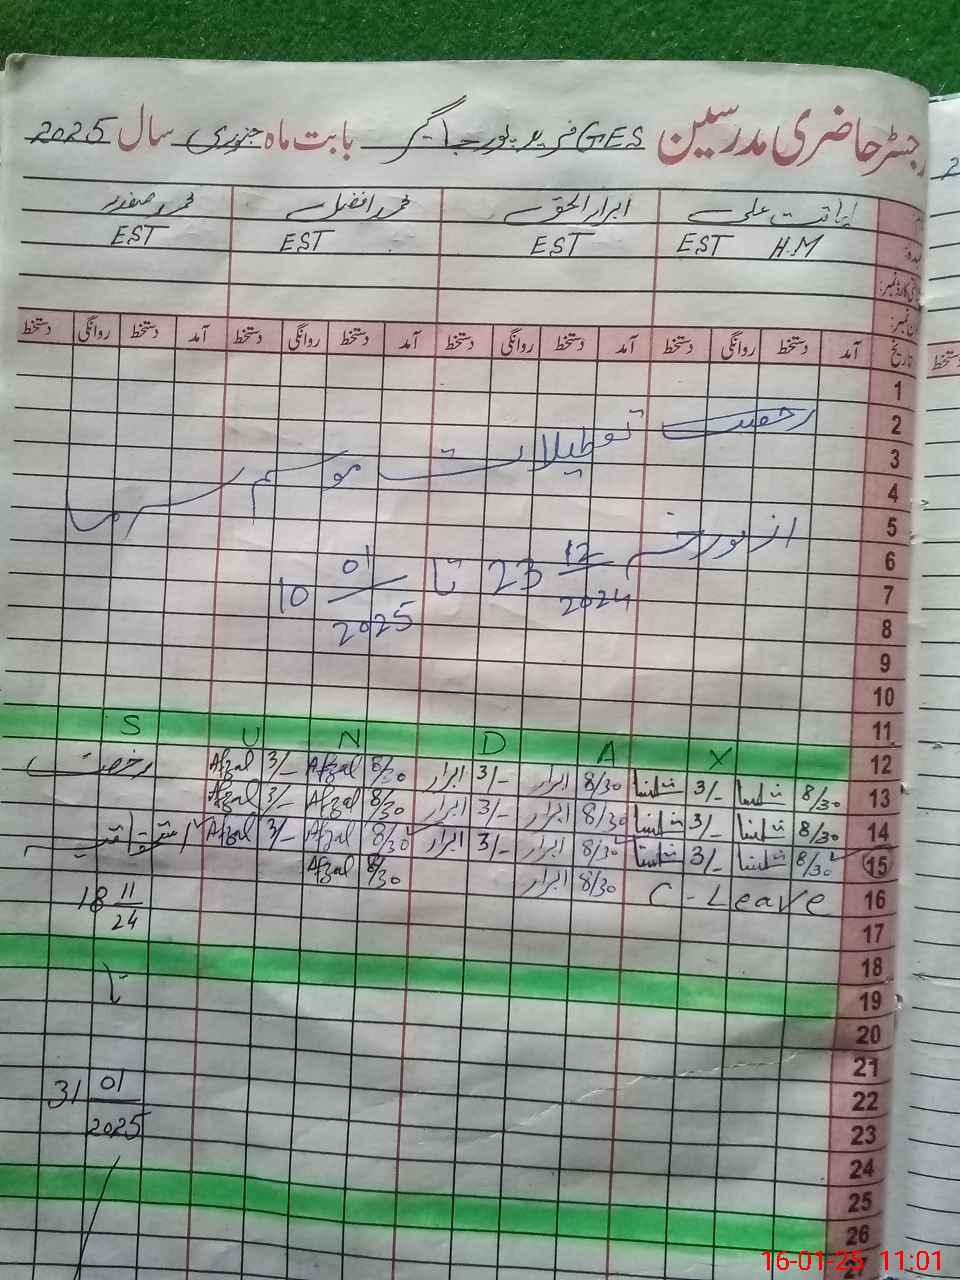 رجسٹر حاضری مدرسین GES فرید پور جاگیر بابت ماہ جنوری سال 2025
لیاقت علی ابرار الحق محمد افضل محمد صفدر
EST H.M EST EST EST
تاریخ آمد دستخط روانگی دستخط آمد دستخط روانگی دستخط آمد دستخط روانگی دستخط آمد دستخط روانگی دستخط
دستخط
1
2 رخصت تعطیلات موسم سرما
3
4
5 از مورخہ 23 12/2024 تا 10 01/2025
6
7
8
9
10
11
12 S U N D A Y
13 8/30 3/- 8/30 ابرار 3/- ابرار 8/30 Afzal 3/- Afzal رخصت
14 8/30 3/- 8/30 ابرار 3/- ابرار 8/30 Afzal 3/- Afzal
15 8/30 3/- 8/30 ابرار 3/- ابرار 8/30 Afzal 3/- Afzal
16 C-Leave 8/30 ابرار 8/30 Afzal
18 11/24
17
18
19
تا
20
21
22
31 01/2025
23
24
25
26
27
16-01-25 11:01